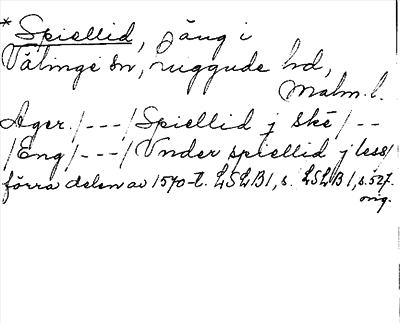 *Spiellid, jäng i
Välinge sn, ruggude hd,
Malm. l.
Ager /---/ Spiellid j ske /--
/Eng/---/ Vnder spiellid j less/
förra delen av 1570-t. LSLB1, s. LSLB1, s. 527.
orig.